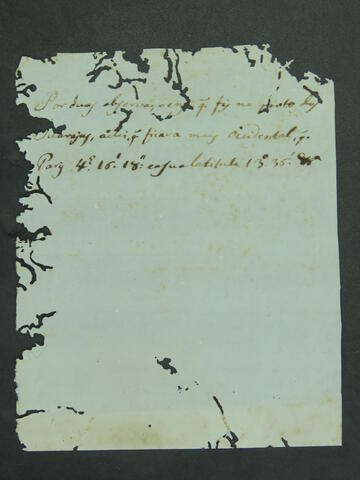 Por duas observações q. fiz no porto das
Laranjas, achei q. ficava mais Occidental q.
Pariz 4.° 16.' 18." e sua latitude 13.° 36.'